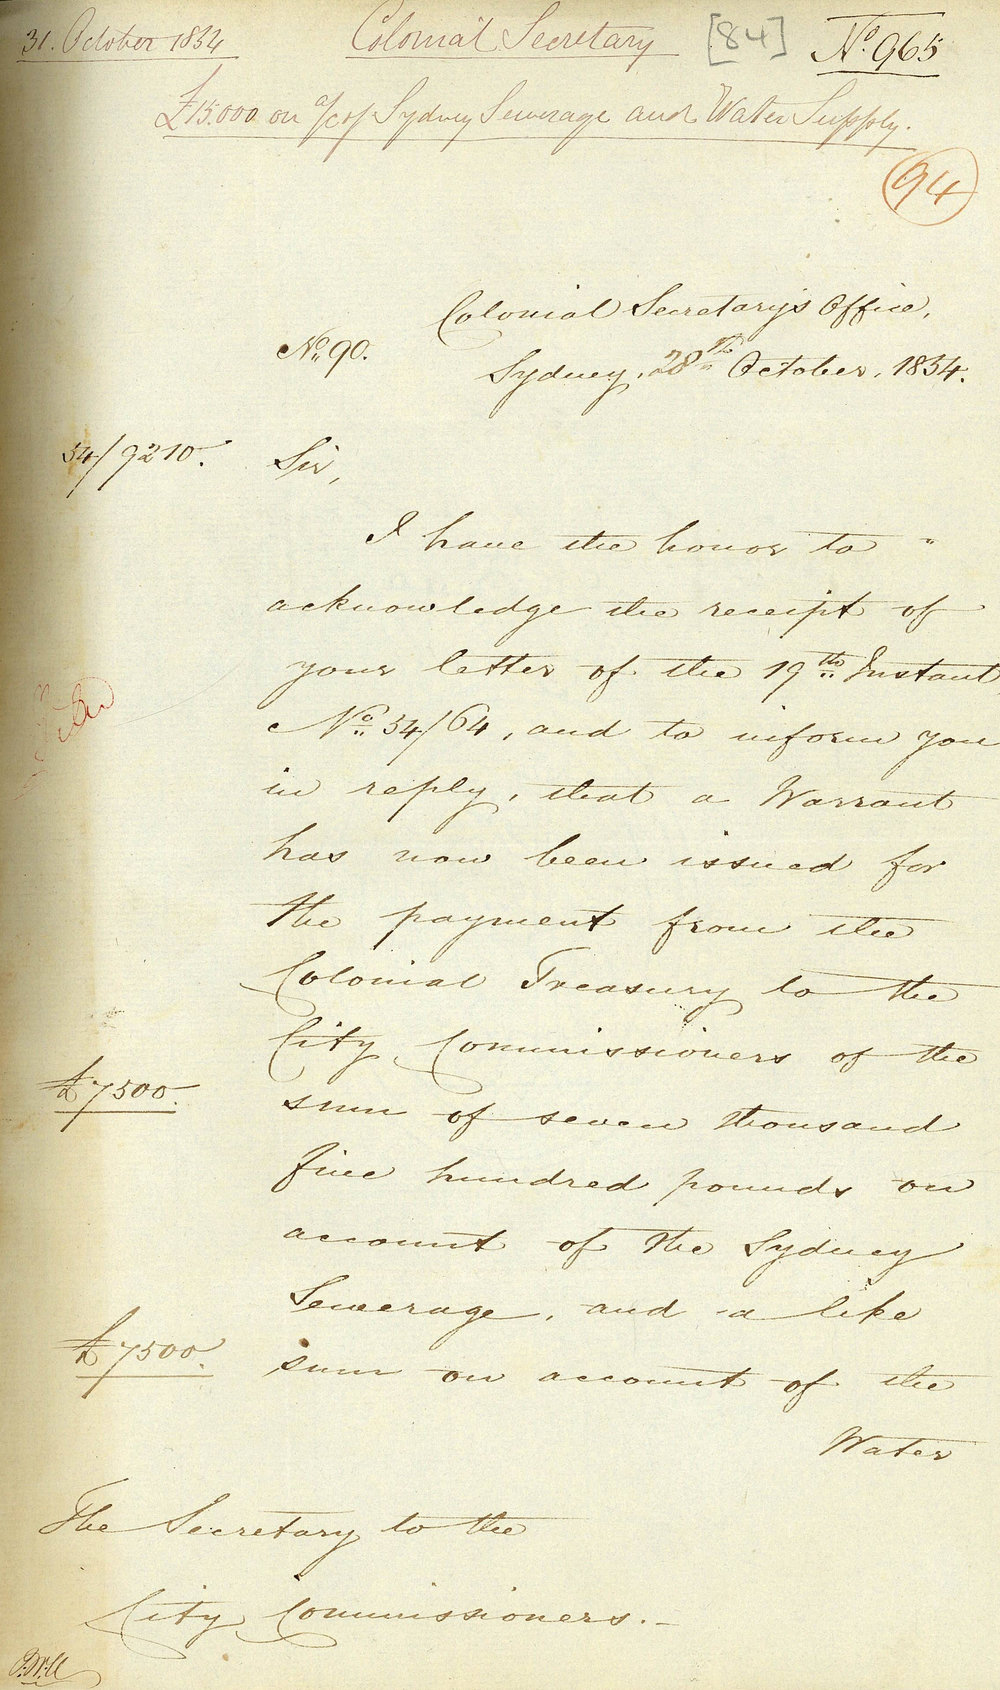 31. October 1854
Colonial Secretary [84] No. 965
£15.000 on a/c of Sydney Sewerage and Water Supply.
94
Colonial Secretary's Office,
No. 90.
Sydney, 28th October, 1854.
54/9210.
Sir,
I have the honor to "
acknowledge the receipt of
your letter of the 19th Instant
No. 54/64, and to inform you
in reply, that a Warrant
has now been issued for
the payment from the
Colonial Treasury to the
City Commissioners of the
£7500.
sum of seven thousand
five hundred pounds on
account of the Sydney
Sewerage, and a like
£7500.
sum on account of the
Water
The Secretary to the
City Commissioners.-